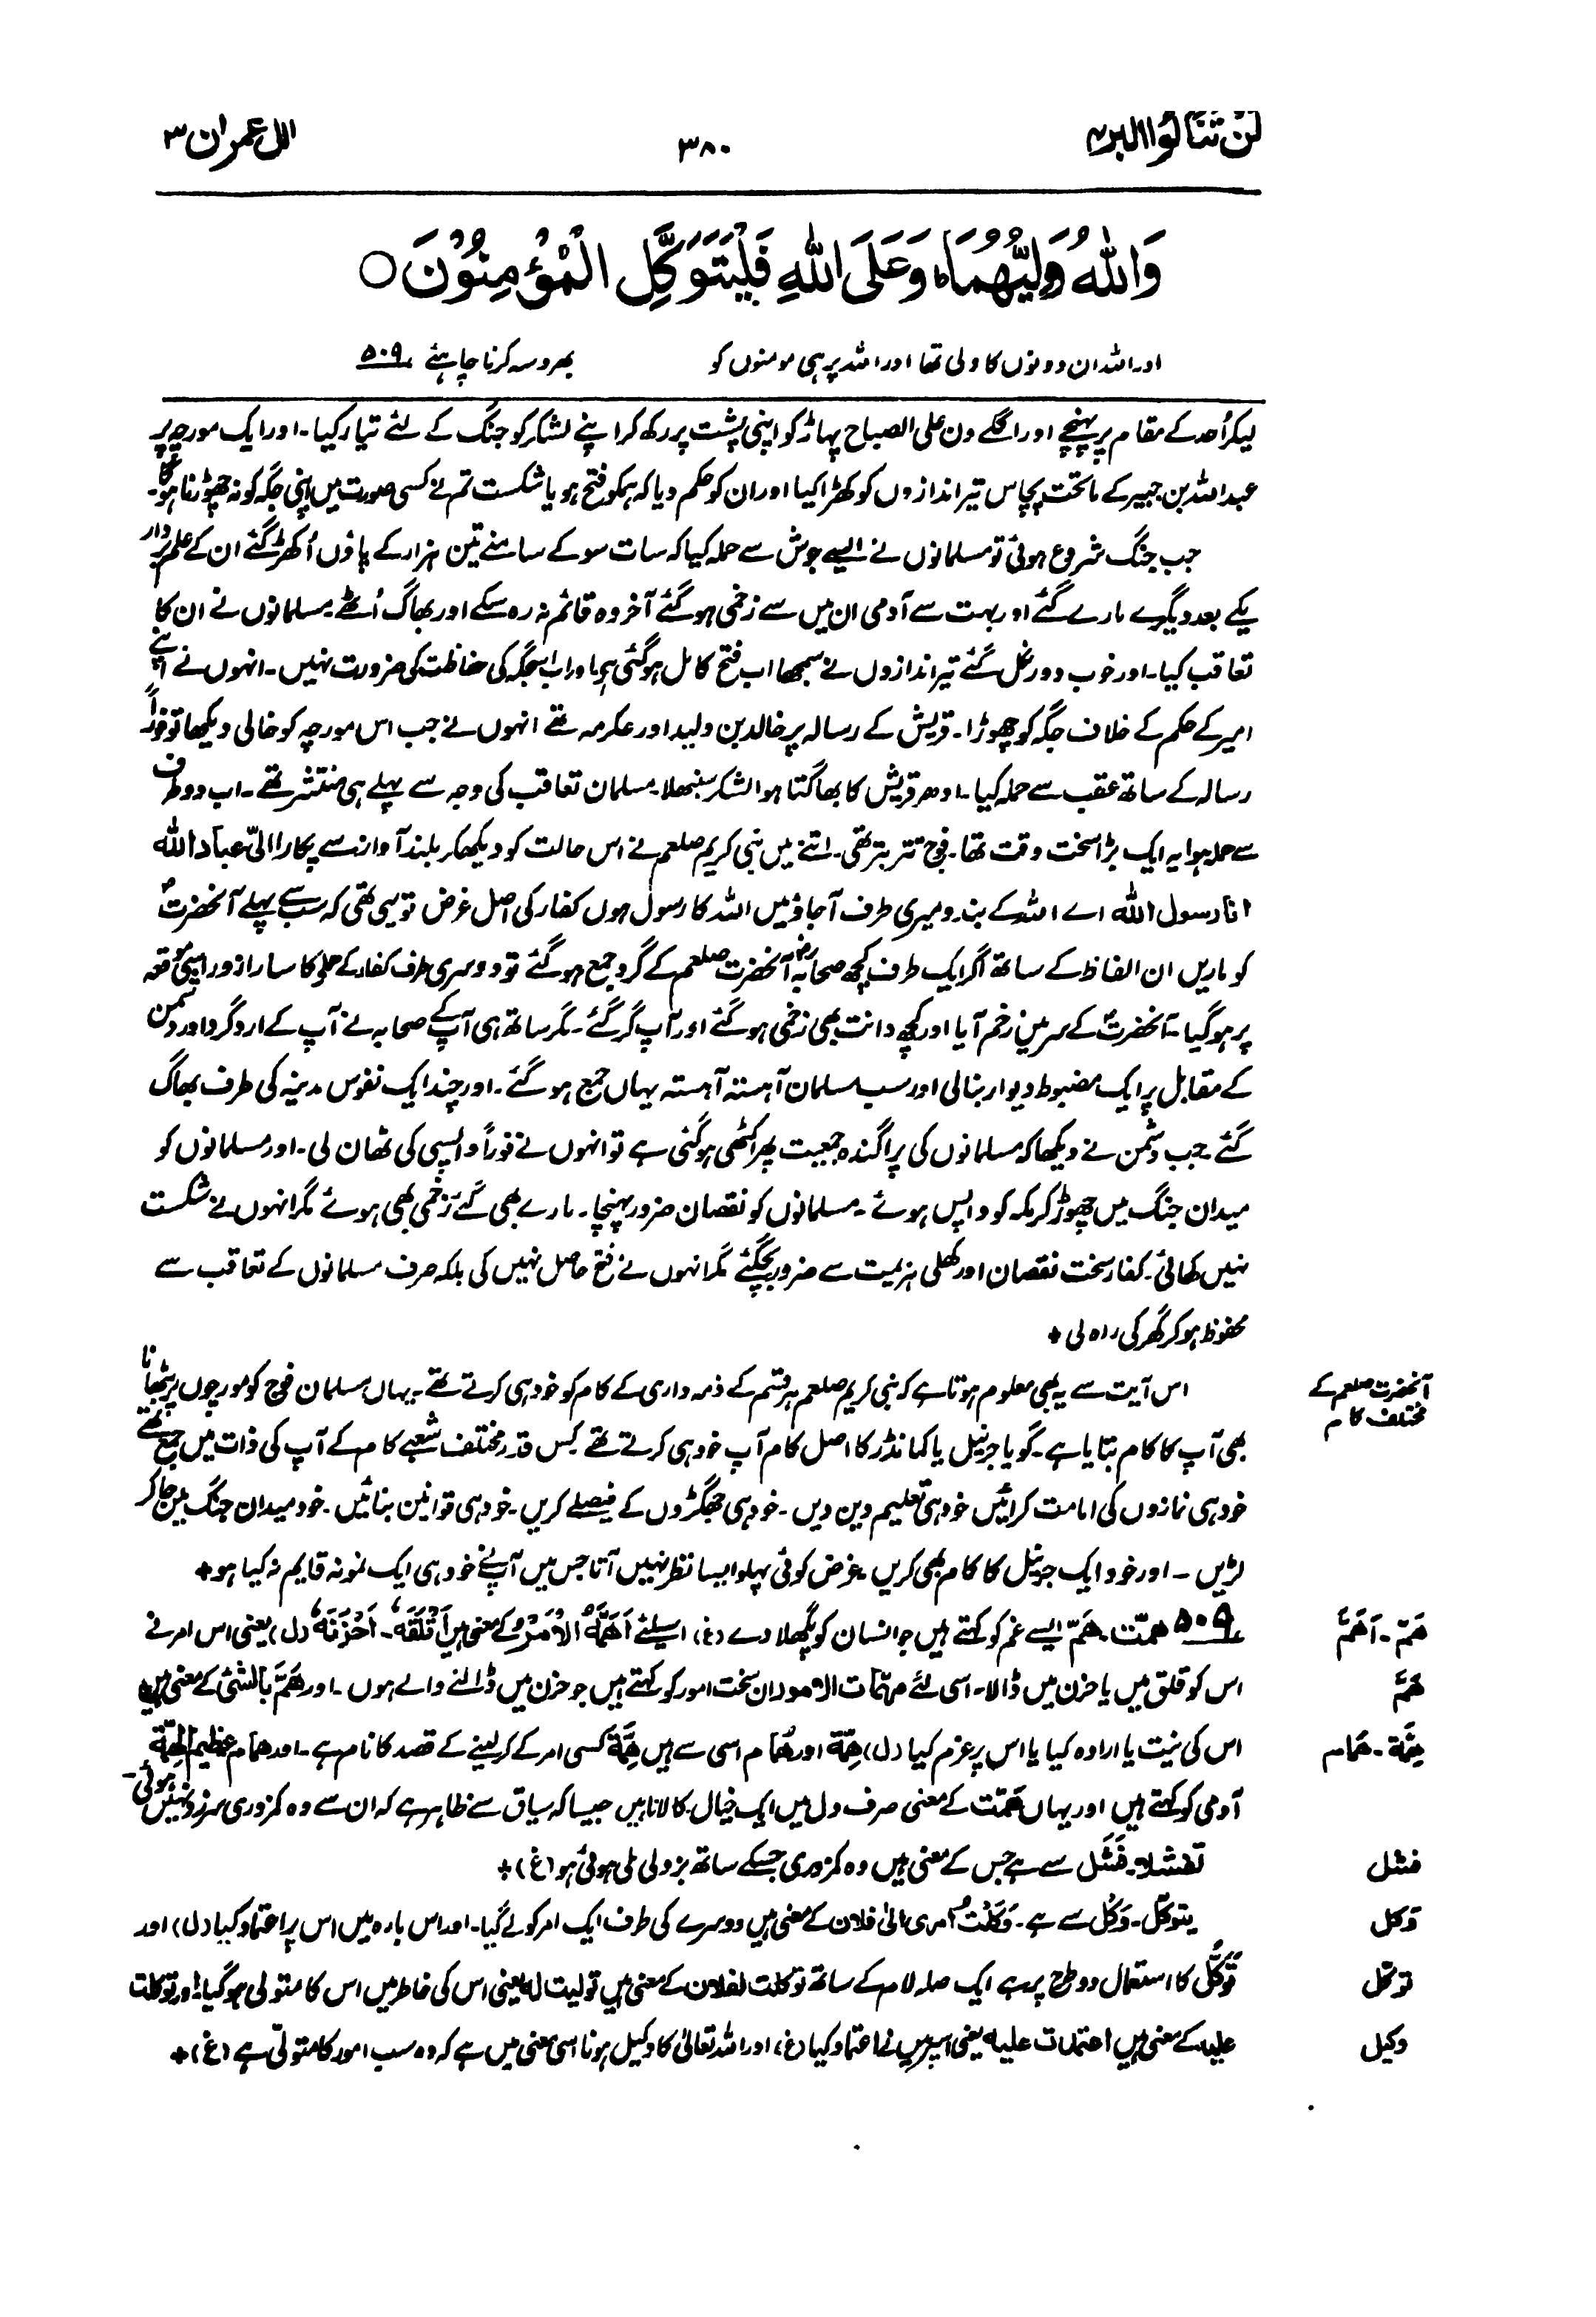 لَنْ تَنَالُوا البر ۴
۳۸۰
اٰل عمران ۳
وَاللّٰهُ وَلِيُّهُمَا ؕ وَعَلَى اللّٰهِ فَلْيَتَوَكَّلِ الْمُؤْمِنُوْنَ ○
اور اللہ ان دونوں کا ولی تھا اور اللہ پر ہی مومنوں کو بھروسہ کرنا چاہئے ۵۰۹
لیکر اُحد کے مقام پر پہنچے اور اگلے دن علی الصباح پہاڑ کو اپنی پشت پر رکھ کر اپنے لشکر کو جنگ کے لئے تیار کیا۔ اور ایک مورچہ پر
عبداللہ بن جبیر کے ماتحت پچاس تیراندازوں کو کھڑا کیا اور ان کو حکم دیا کہ ہمکو فتح ہو یا شکست تم نے کسی صورت میں اپنی جگہ کو نہ چھوڑنا ہوگا۔
جب جنگ شروع ہوئی تو مسلمانوں نے ایسے جوش سے حملہ کیا کہ سات سو کے سامنے تین ہزار کے پاؤں اُکھڑ گئے ان کے علمبردار
یکے بعد دیگرے مارے گئے اور بہت سے آدمی ان میں سے زخمی ہو گئے آخر وہ قائم نہ رہ سکے اور بھاگ اُٹھے۔ مسلمانوں نے ان کا
تعاقب کیا۔ اور خوب دور نکل گئے تیراندازوں نے سمجھا اب فتح کامل ہو گئی ہے اور اب اسجگہ کی حفاظت کی ضرورت نہیں۔ انہوں نے اپنے
امیر کے حکم کے خلاف جگہ کو چھوڑا۔ قریش کے رسالہ پر خالد بن ولید اور عکرمہ تھے انہوں نے جب اس مورچہ کو خالی دیکھا تو فوراً
رسالہ کے ساتھ عقب سے حملہ کیا۔ ادھر قریش کا بھاگتا ہوا لشکر سنبھلا۔ مسلمان تعاقب کی وجہ سے پہلے ہی منتشر تھے۔ اب دو طرف
سے حملہ ہوا یہ ایک بڑا سخت وقت تھا۔ فوج تتر بتر تھی۔ اتنے میں نبی کریم صلعم نے اس حالت کو دیکھکر بلند آواز سے پکارا الیّ عباد اللہ
انا رسول اللہ اے اللہ کے بندو میری طرف آجاؤ میں اللہ کا رسول ہوں کفار کی اصل غرض تو یہی تھی کہ سب سے پہلے آنحضرت ؐ
کو ماریں ان الفاظ کے ساتھ اگر ایک طرف کچھ صحابہؓ آنحضرت صلعم کے گرد جمع ہو گئے تو دوسری طرف کفار کے حملے کا سارا زور اسی موقعہ
پر ہو گیا۔ آنحضرت ؐ کے سر میں زخم آیا اور کچھ دانت بھی زخمی ہو گئے اور آپ گر گئے۔ مگر ساتھ ہی آپ کے صحابہ نے آپ کے اردگرد اور دشمن
کے مقابل پر ایک مضبوط دیوار بنالی اور سب مسلمان آہستہ آہستہ یہاں جمع ہو گئے۔ اور چند ایک نفوس مدینہ کی طرف بھاگ
گئے۔ جب دشمن نے دیکھا کہ مسلمانوں کی پراگندہ جمعیت پھر اکٹھی ہو گئی ہے تو انہوں نے فوراً واپسی کی ٹھان لی۔ اور مسلمانوں کو
میدان جنگ میں چھوڑ کر مکہ کو واپس ہوئے۔ مسلمانوں کو نقصان ضرور پہنچا۔ مارے بھی گئے زخمی بھی ہوئے مگر انہوں نے شکست
نہیں کھائی۔ کفار سخت نقصان اور کھلی ہزیمت سے ضرور بچ گئے مگر انہوں نے فتح حاصل نہیں کی بلکہ صرف مسلمانوں کے تعاقب سے
محفوظ ہو کر گھر کی راہ لی +
آنحضرت صلعم کے
مختلف کام
اس آیت سے یہ بھی معلوم ہوتا ہے کہ نبی کریم صلعم ہر قسم کے ذمہ داری کے کام کو خود ہی کرتے تھے۔ یہاں مسلمان فوج کو مورچوں پر بٹھانا
بھی آپ کا کام بتایا ہے۔ گویا جرنیل یا کمانڈر کا اصل کام آپ خود ہی کرتے تھے کس قدر مختلف شعبے کام کے آپ کی ذات میں جمع تھے
خود ہی نمازوں کی امامت کرائیں خود ہی تعلیم دین دیں۔ خود ہی جھگڑوں کے فیصلے کریں۔ خود ہی قوانین بنائیں۔ خود میدان جنگ میں جاکر
لڑیں۔ اور خود ایک جرنیل کا کام بھی کریں۔ غرض کوئی پہلو ایسا نظر نہیں آتا جس میں آپ نے خود ہی ایک نمونہ قایم نہ کیا ہو +
هَمّ۔ اَهَمَّ
۵۰۹ همّت۔ هَمّ ایسے غم کو کہتے ہیں جو انسان کو پگھلا دے (غ) اسیلئے اَهَمَّهُ الْاَمْرُ کے معنی ہیں اَقْلَقَهٗ۔ اَحْزَنَهٗ (ل) یعنی اس امر نے
هَمَّ
اس کو قلق میں یا حزن میں ڈالا۔ اسی لئے مہمّات الامور ان سخت امور کو کہتے ہیں جو حزن میں ڈالنے والے ہوں۔ اور هَمَّ بالشئ کے معنی ہیں
هِمَّة۔ هُمام
اس کی نیت یا ارادہ کیا یا اس پر عزم کیا (ل) هِمَّة اور هُمام اسی سے ہیں هِمَّة کسی امر کے کرلینے کے قصد کا نام ہے۔ اور همام عظیم الهمّة
آدمی کو کہتے ہیں اور یہاں هَمَّت کے معنی صرف دل میں ایک خیال کا لانا ہیں جیسا کہ سیاق سے ظاہر ہے کہ ان سے وہ کمزوری سرزد نہیں ہوئی۔
فشل
تفشلا۔ فَشَل سے ہے جس کے معنی ہیں وہ کمزوری جسکے ساتھ بزدلی ملی ہوئی ہو (غ) +
وَکل
یتوکّل۔ وَکْل سے ہے۔ وَکَلْتُ امری الیٰ فلان کے معنی ہیں دوسرے کی طرف ایک امر کو لے گیا۔ اور اس بارہ میں اس پر اعتماد کیا (ل) اور
توکّل
تَوَکُّل کا استعمال دو طرح پر ہے ایک صلہ لام کے ساتھ توکلت لفلان کے معنی ہیں تولیت لہ یعنی اس کی خاطر میں اس کا متولی ہو گیا۔ اور توکلت
وکیل
علیہ کے معنی ہیں اعتمدت علیہ یعنی اسپر میں نے اعتماد کیا (غ) اور اللہ تعالیٰ کا وکیل ہونا اسی معنی میں ہے کہ وہ سب امور کا متولّی ہے (غ) +